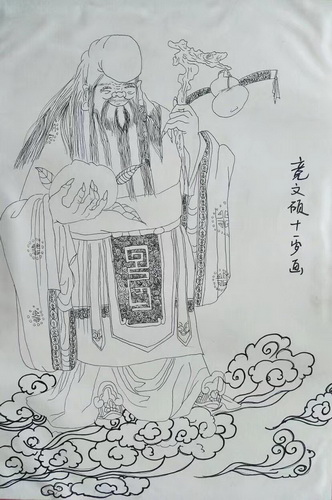 亮文硕十一岁画